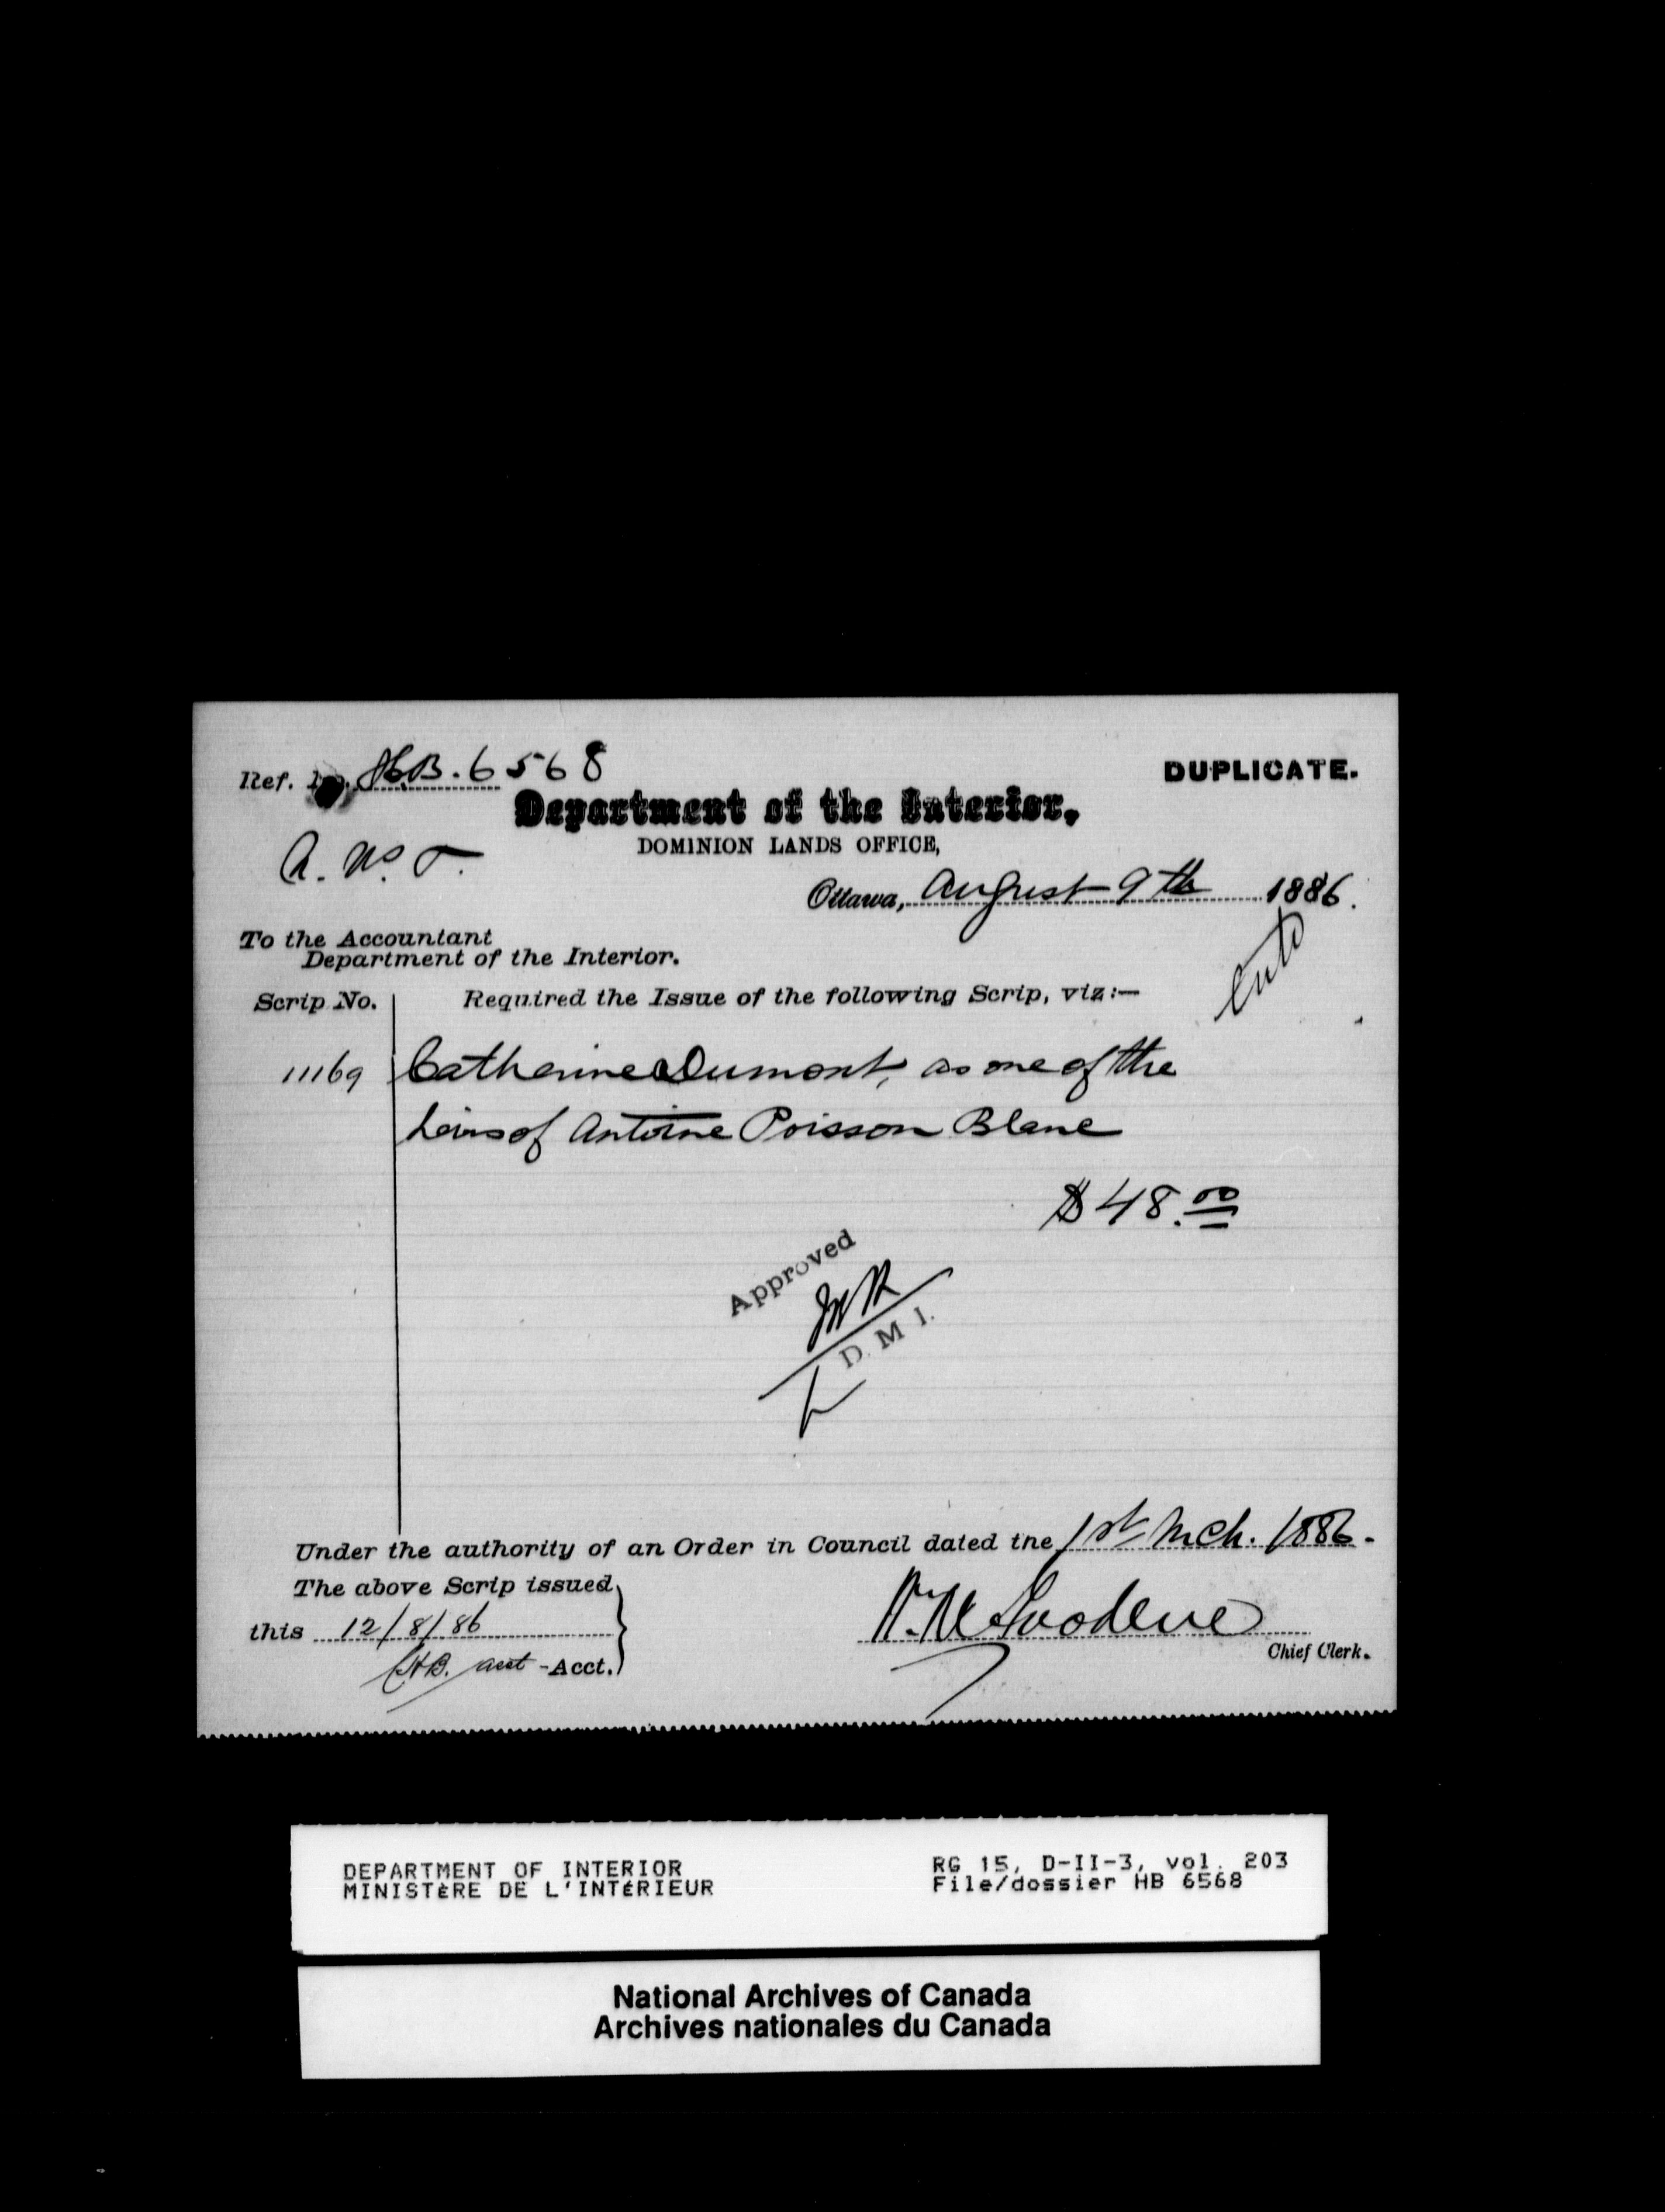 Ref. No. HB. 6568
DUPLICATE.
Department of the Interior,
DOMINION LANDS OFFICE,
Ottawa, August 9th 1886.
To the Accountant
Department of the Interior.
Scrip No. Required the Issue of the following Scrip, viz:—
11169 Catherine Dumont, as one of the
heirs of Antoine Poisson Blanc
$48.00
Approved
D. M. I.
Under the authority of an Order in Council dated the 1st Mch. 1886.
The above Scrip issued
this 12/8/86
acct - Acct.
Chief Clerk.
DEPARTMENT OF INTERIOR
MINISTÈRE DE L'INTÉRIEUR
RG 15, D-II-3, vol. 203
File/dossier HB 6568
National Archives of Canada
Archives nationales du Canada